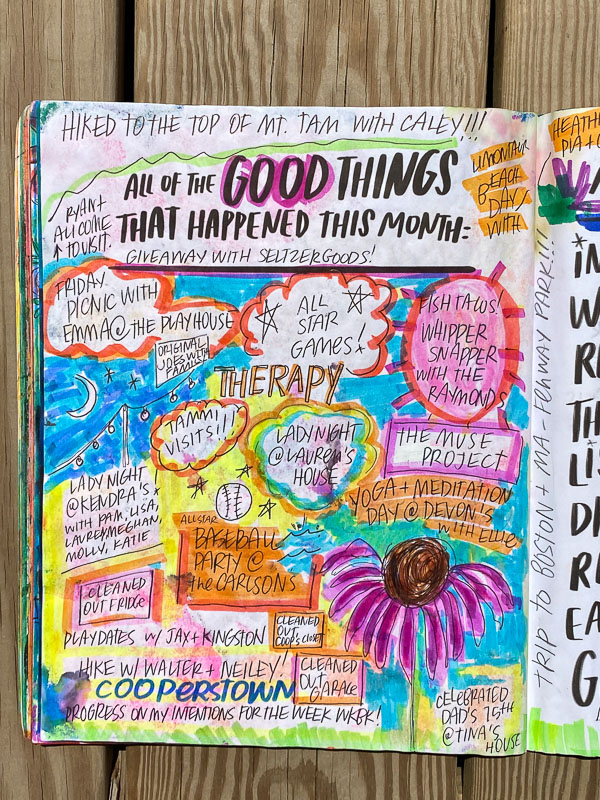 HIKED TO THE TOP OF MT. TAM WITH CALEY!!!
ALL OF THE GOOD THINGS
THAT HAPPENED THIS MONTH:
GIVEAWAY WITH SELTZERGOODS!
RYAN +
ALI COME
TO VISIT.
BEACH
DAYS
WITH
FRIDAY
PICNIC WITH
EMMA @ THE PLAYHOUSE
ALL
STAR
GAMES!
FISH TACOS!
WHIPPER
SNAPPER
WITH THE
RAYMONDS
ORIGINAL
JOES WITH
FAMILY
THERAPY
TAMMI
VISITS!!!
LADY NIGHT
@ LAUREN'S
HOUSE
THE MUSE
PROJECT
LADY NIGHT
@ KENDRA'S
WITH PAM, LISA,
LAUREN, MEGHAN,
MOLLY, KATIE
YOGA + MEDITATION
DAY @ DEVON'S
WITH ELLIE
ALLSTAR
BASEBALL
PARTY @
THE CARLSONS
CLEANED
OUT FRIDGE
PLAYDATES W/ JAX + KINGSTON
CLEANED
OUT
COOP'S CLOSET
HIKE W/ WALTER + NEILEY!
CLEANED
OUT
GARAGE
COOPERSTOWN
PROGRESS ON MY INTENTIONS FOR THE WEEK WKBK!
CELEBRATED
DAD'S 75TH
@ TINA'S
HOUSE
TRIP TO BOSTON + MA FENWAY PARK!!!
HEATH
PIA +
IN
W
RE
TH
LIS
DR
RE
EA
G